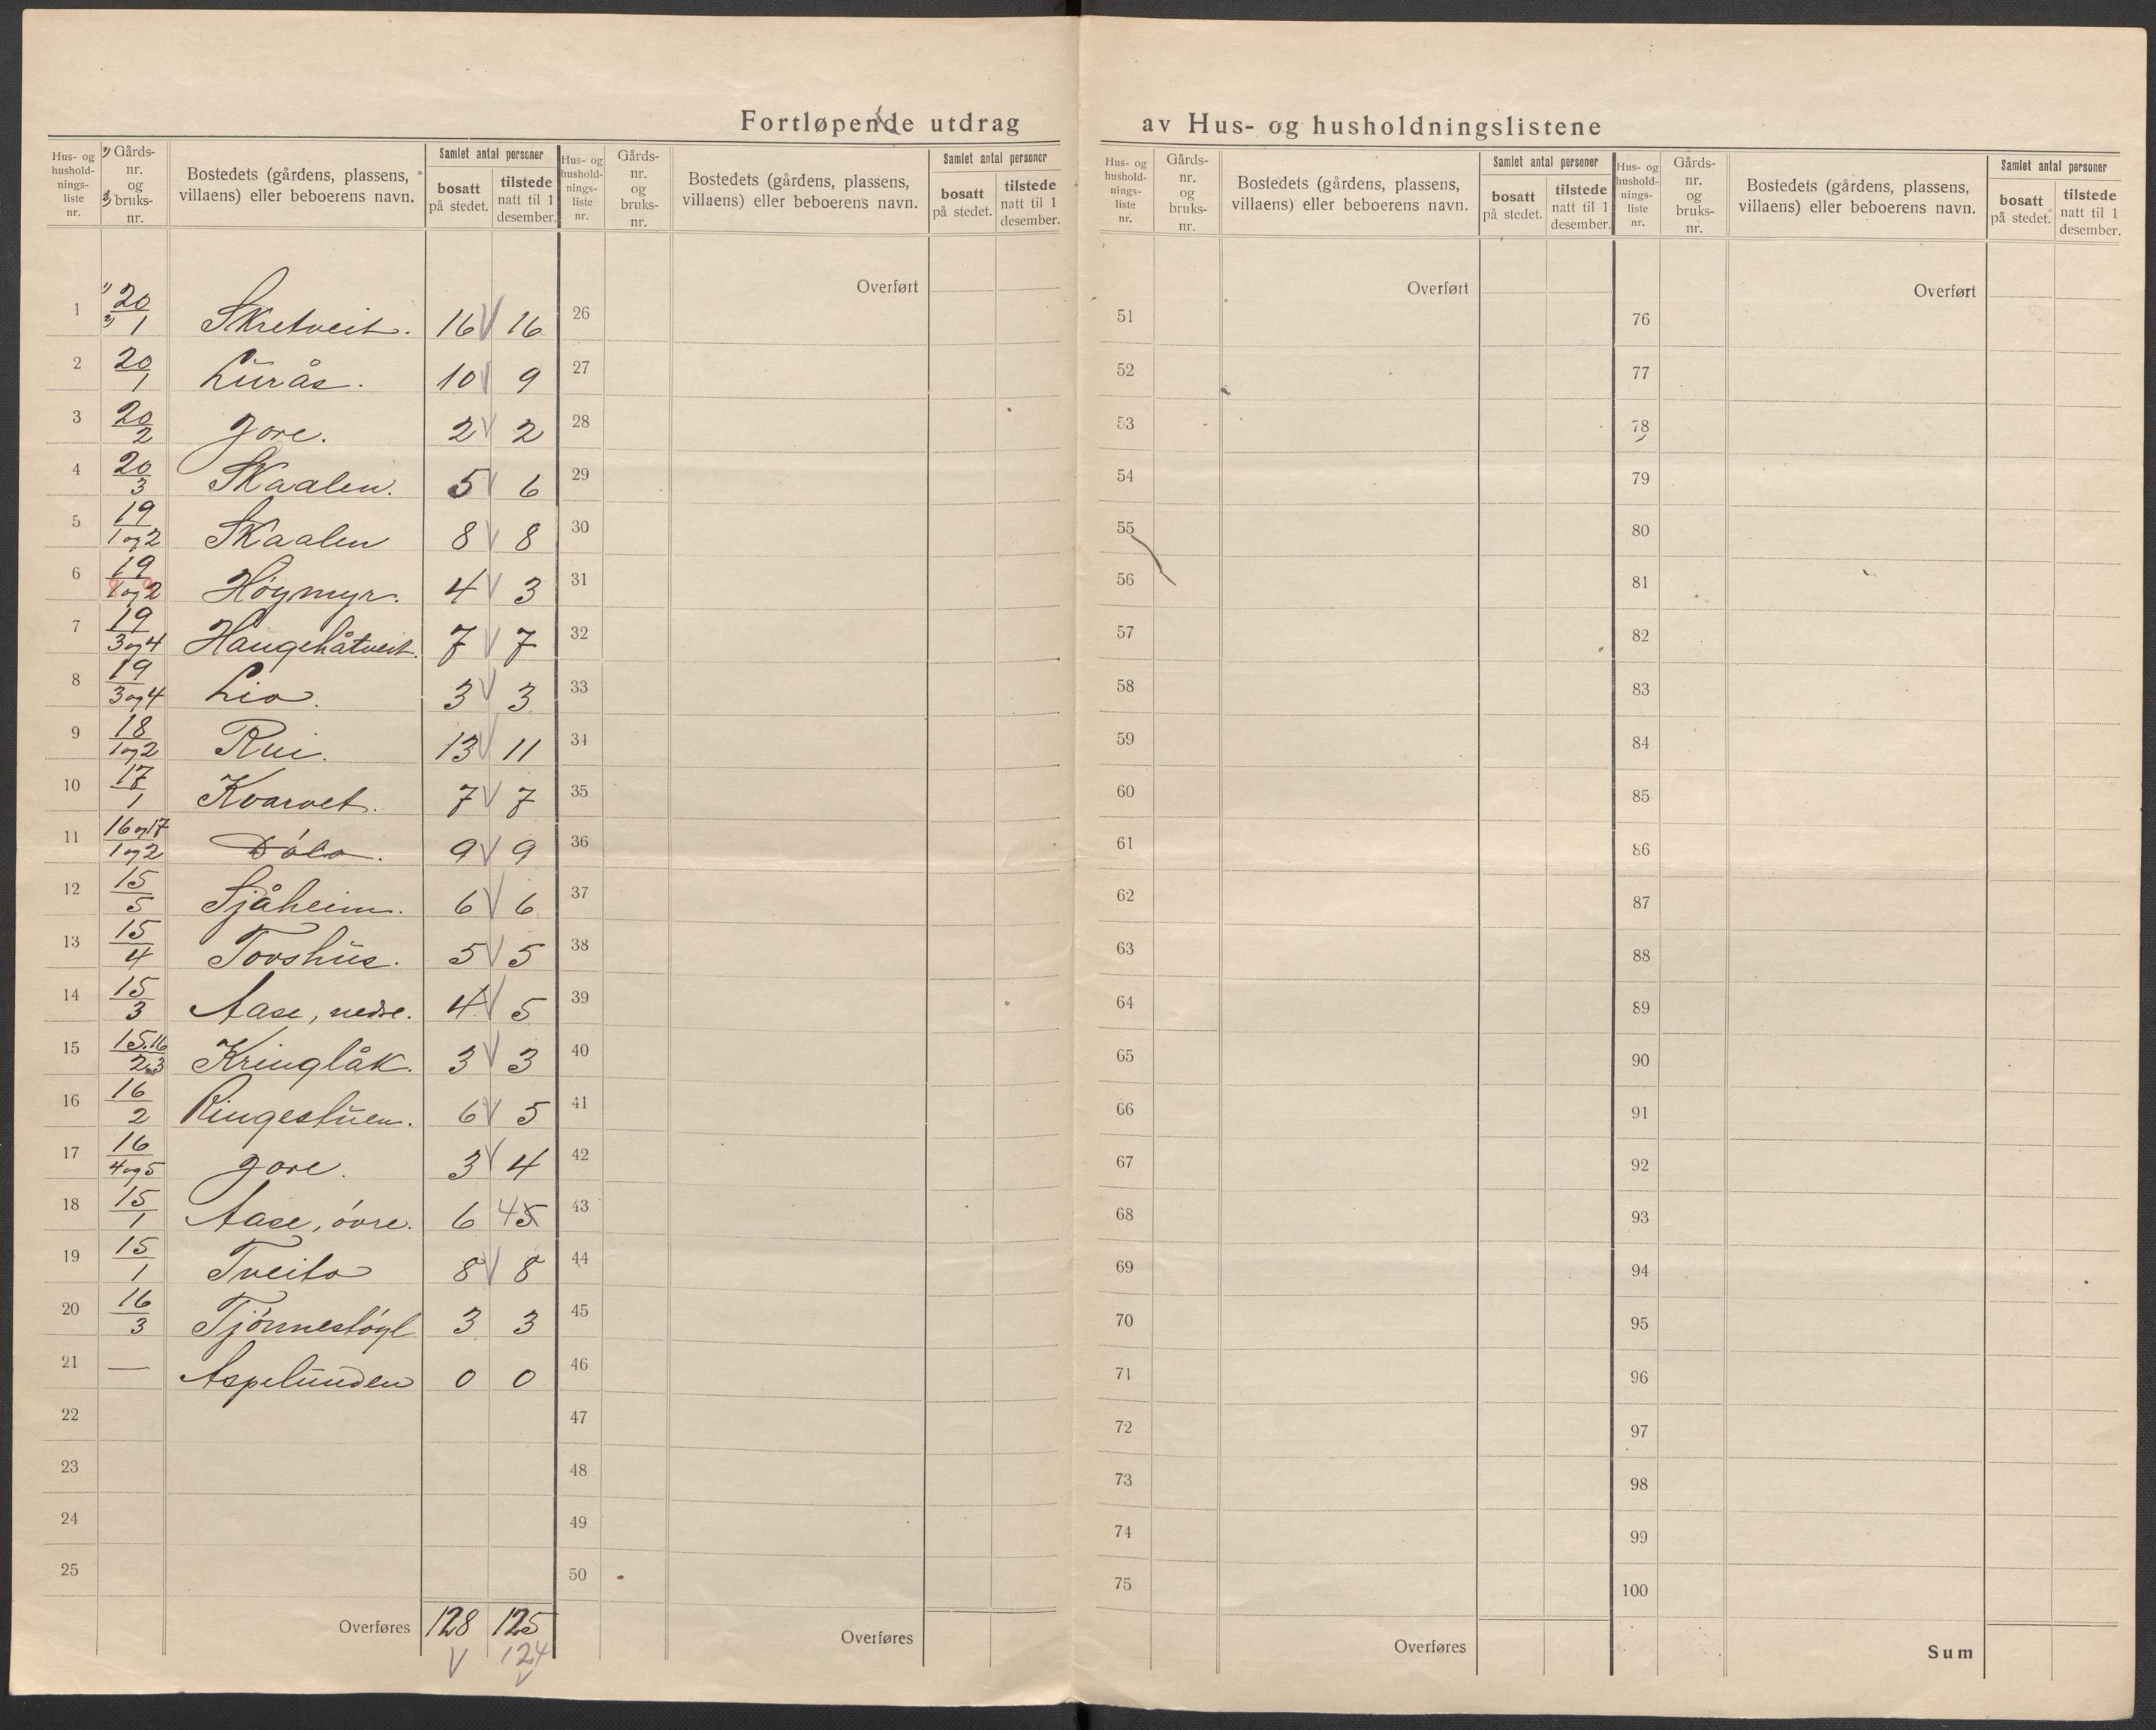 Fortløpende utdrag av Hus- og husholdningslistene
Hus- og husholdnings-liste nr. | 1) Gårds-nr. og 2) bruks-nr. | Bostedets (gårdens, plassens, villaens) eller beboerens navn. | Samlet antal personer | bosatt på stedet. | tilstede natt til 1 desember.
Hus- og husholdnings-liste nr. | Gårds-nr. og bruks-nr. | Bostedets (gårdens, plassens, villaens) eller beboerens navn. | Samlet antal personer | bosatt på stedet. | tilstede natt til 1 desember.
Hus- og husholdnings-liste nr. | Gårds-nr. og bruks-nr. | Bostedets (gårdens, plassens, villaens) eller beboerens navn. | Samlet antal personer | bosatt på stedet. | tilstede natt til 1 desember.
Hus- og husholdnings-liste nr. | Gårds-nr. og bruks-nr. | Bostedets (gårdens, plassens, villaens) eller beboerens navn. | Samlet antal personer | bosatt på stedet. | tilstede natt til 1 desember.
1 1) 20 2) 1 Skretveit. 16 V 16
2 20/1 Lurås. 10 V 9
3 20/2 Gore. 2 V 2
4 20/3 Skaalen. 5 V 6
5 19/1 og 2 Skaalen 8 V 8
6 19/1 og 2 Höymyr. 4 V 3
7 19/3 og 4 Haugehåtveit. 7 V 7
8 19/3 og 4 Lio. 3 V 3
9 18/1 og 2 Rui. 13 V 11
10 17/1 Kvarvet. 7 V 7
11 16 og 17/1 og 2 Dólo. 9 V 9
12 15/5 Sjåheim. 6 V 6
13 15/4 Torshus. 5 V 5
14 15/3 Aase, nedre. 4 V 5
15 15.16/2.3 Kringlåk. 3 V 3
16 16/2 Ringestuen. 6 V 5
17 16/4 og 5 Gore. 3 V 4
18 15/1 Aase, óvre. 6 4 5
19 15/1 Tveito 8 V 8
20 16/3 Tjónnestóyl 3 3
21 — Aspelunden 0 0
22
23
24
25
Overføres 128 125
V 124
V
Overført
26
27
28
29
30
31
32
33
34
35
36
37
38
39
40
41
42
43
44
45
46
47
48
49
50
Overføres
Overført
51
52
53
54
55
56
57
58
59
60
61
62
63
64
65
66
67
68
69
70
71
72
73
74
75
Overføres
Overført
76
77
78
79
80
81
82
83
84
85
86
87
88
89
90
91
92
93
94
95
96
97
98
99
100
Sum